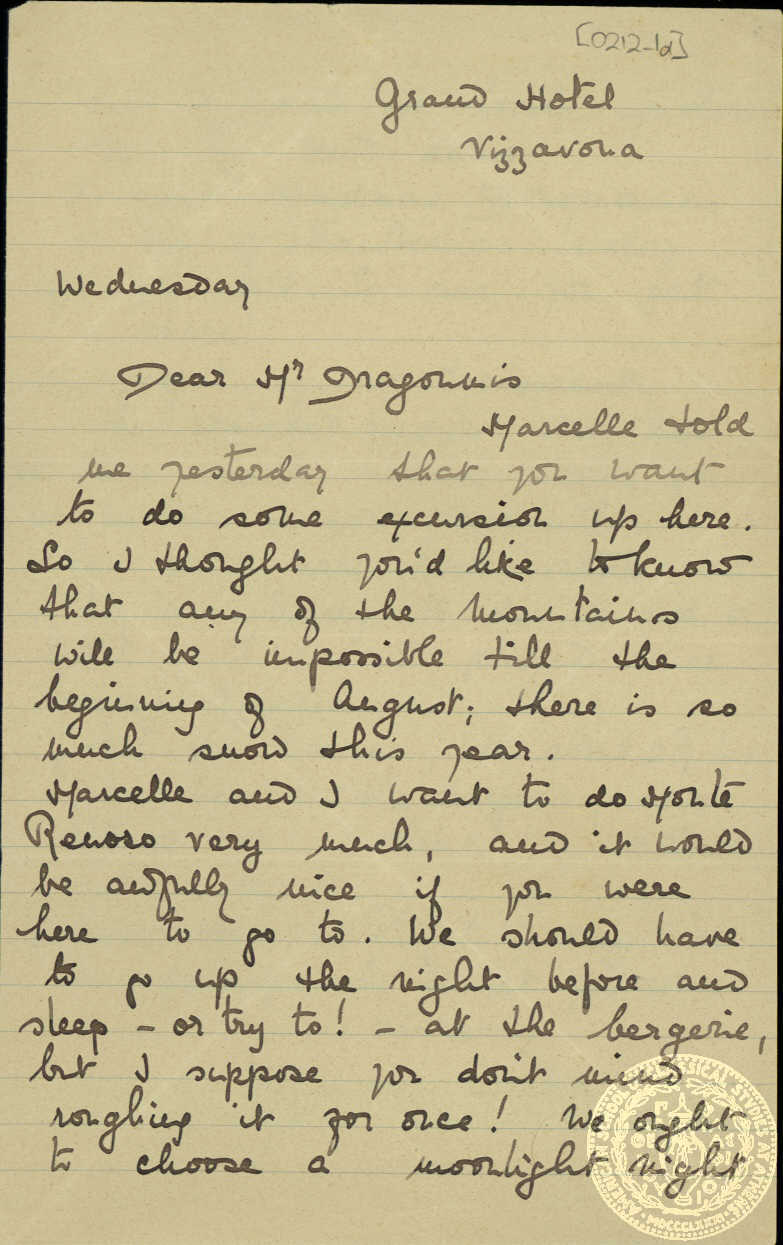 [0212-1d]
Grand Hotel
Vizzavona
Wednesday
Dear Mr Dragoumis
Marcelle told
me yesterday that you want
to do some excursion up here.
So I thought you'd like to know
that any of the mountains
will be impossible till the
beginning of August; there is so
much snow this year.
Marcelle and I want to do Monte
Renoso very much, and it would
be awfully nice if you were
here to go to. We should have
to go up the night before and
sleep - or try to! - at the bergerie,
but I suppose you don't mind
roughing it for once! We ought
to choose a moonlight night
AMERICAN SCHOOL OF CLASSICAL STUDIES AT ATHENS
MDCCCLXXXI